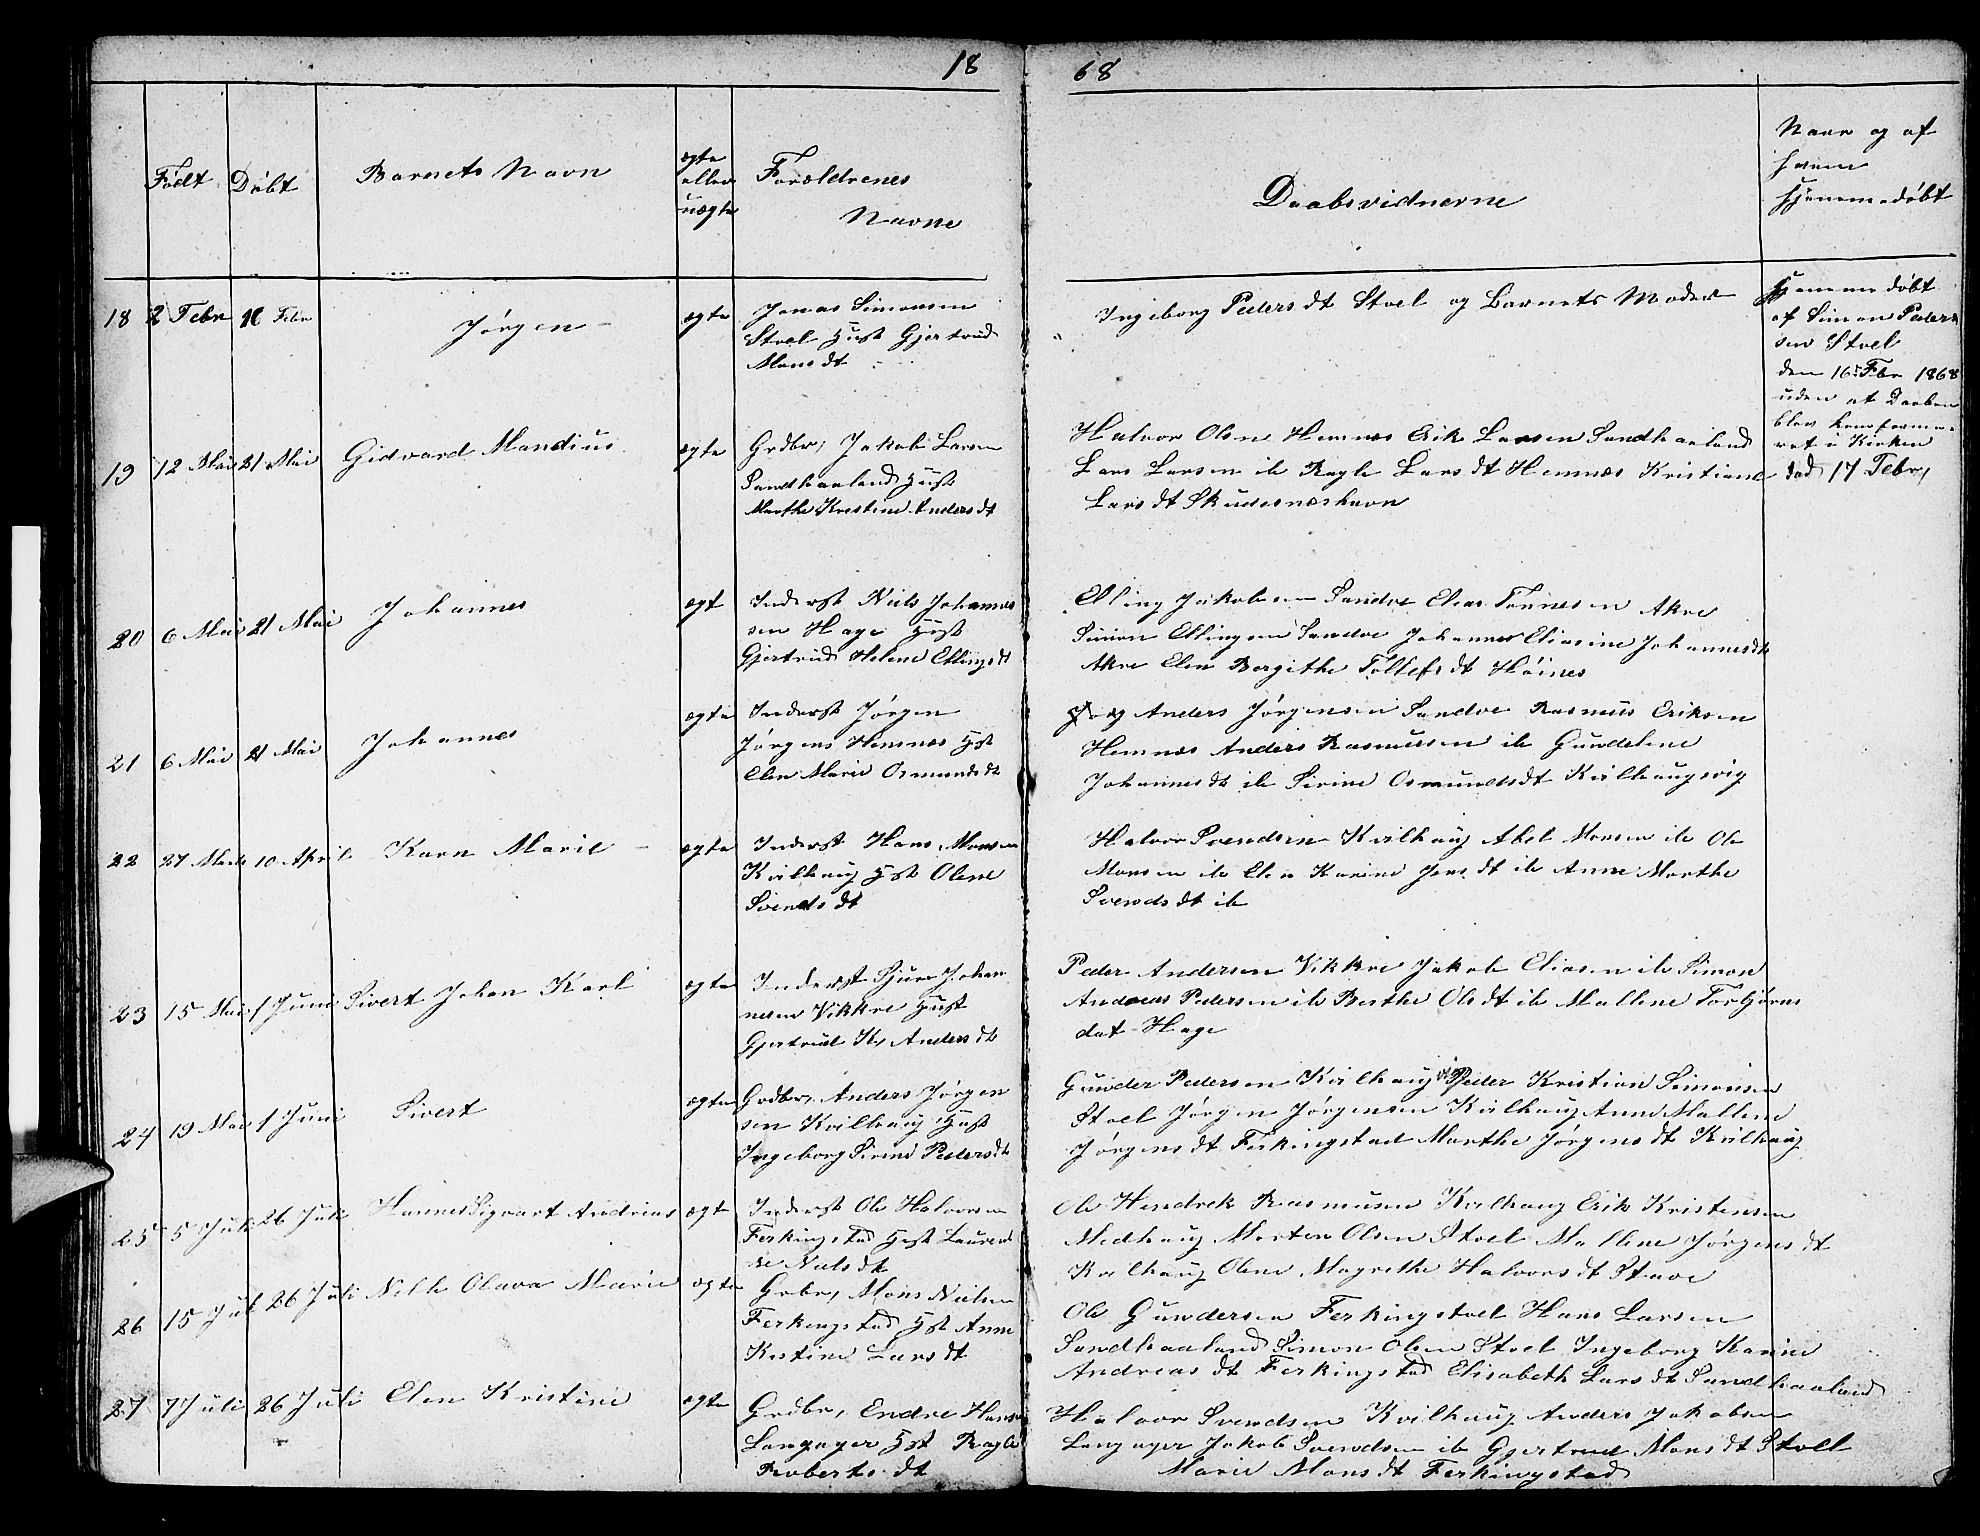 18 68
Født Døbt Barnets Navn
ægte eller uægte
Forældrenes Navne
Daabsvidnerne
Naar og af hvem hjemmedøbt
18 2 Febr 16 Febr Jørgen ægte
Jonas Simonsen
Stoel Hust Gjertrud
Mons dt
Ingeborg Peders dt Stoel og Barnets Moder
Hjemmedøbt
af Simon Peder
sen Stoel
den 16 Febr 1868
uden at Daaben
blev
ret i Kirken
død 17 Febr,
19 12 Mai 21 Mai Gidvard Mandius ægte
Grdbr, Jakob Larsen
Sandhaaland Hust
Marthe Kristine Anders dt
Halvor Olsen Hemnes Erik Larsen Sandhaaland
Lars Larsen ib Ragle Lars dt Hemnæs Kristiane
Lars dt Skudesnæshavn
20 6 Mai 21 Mai Johannes ægt
Inderst Niels Johannes
sen Hage Hust
Gjertrud Helene Ellings dt
Elling Jakobsen Sandve Elias Tønnesen Akre
Simon Ellingsen Sandve Johanne Eliasine Johannesdt
Akre Elen Bergithe Tollefs dt Høines
21 6 Mai 21 Mai Johannes ægte
Inderst Jørgen
Jørgens Hemnæs Hst
Elen Marie Osmundsdt
Anders Jørgensen Sandve Rasmus Eriksen
Hemnæs Anders Rasmussen ib Gundelene
Johannesdt ib Sirine Osmundsdt Kvilhaugsvig
22 27 Marts 10 April Karn Marie ægte
Inderst Hans Monsen
Kvilhaug Hst Olene
Svends dt
Halvor Svendsen Kvilhaug Abel Monsen ib Ole
Monsen ib Elen Karine Jens dt ib Anne Marthe
Svends dt ib
23 15 Mai 1 Juni Sivert Johan Karl ægte
Inderst Sjur Johan
nesen Vikkre Hust
Gjertrud Kr, Anders dt
Peder Andersen Vikkre Jakob Eliasen ib Simon
Andreas Pedersen ib Berthe Ols dt ib Mallene Torbjørns
dat Hage
24 19 Mai 1 Juni Sivert ægte
Grdbr, Anders Jørgen
sen Kvilhaug Hust
Ingeborg Sirine Peders dt
Gunder Pedersen Kvilhaugvig Peder Kristian Simonsen
Stoel Jørgen Jørgensen Kvilhaug Anne Mallene
Jørgens dt Ferkingstad Marthe Jørgens dt Kvilhaug
25 5 Juli 26 Juli Hannes Sigvart Andreas ægte
Inderst Ole Halvorsen
Ferkingstad Hust Laurent
se Niels dt
Ole Hendrek Rasmusen Kvilhaug Erik Kristensen
Medhaug Morten Olsen Stoel Mallene Jørgens dt
Kvilhaug Olene Magrethe Halvors dt Stave
26 15 Juli 26 Juli Nille Olava Marie ægte
Grbr, Mons Nielsen
Ferkingstad Hst Anne
Kistine Lars dt
Ole Gundersen Ferkingstoel Hans Larsen
Sandhaaland Simon Olsen Stoel Ingeborg Karine
Andreas dt Ferkingstad Elisabeth Lars dt Sandhaaland
27 7 Juli 26 Juli Elen Kristine ægte
Grdbr, Endre Hans
Langager Hst Ragle
Roberts dt
Halvor Svendsen Kvilhaug Anders Jakobsen
Langager Jakob Svendsen ib Gjertrud Mons dt Stoel
Marie Mons dt Ferkingstad